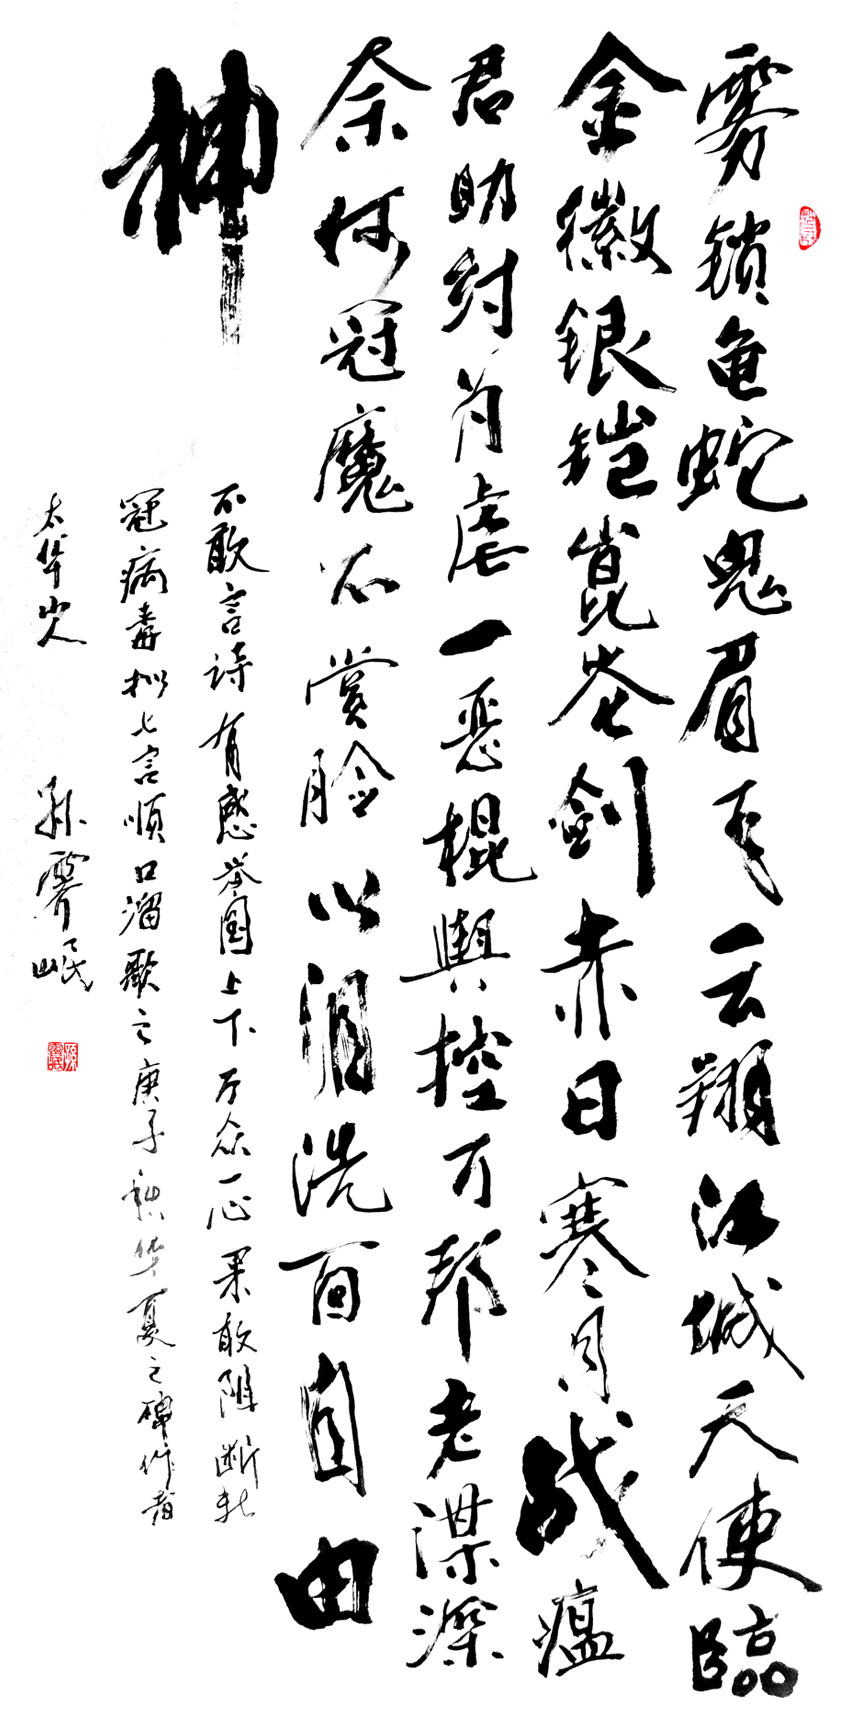 雾锁龟蛇鬼眉云翔江城天使臨
金徽银铠崑岺剑赤日寒月战瘟
君助纣为虐一恶棍舆控万邦老谋深
奈何冠魔不赏脸以泪洗面自由
神
不敢言诗有感举国上下万众一心果敢阻断新
冠病毒拟七言順口溜歌之庚子华夏之碑作者
太华山人 孙霁岷